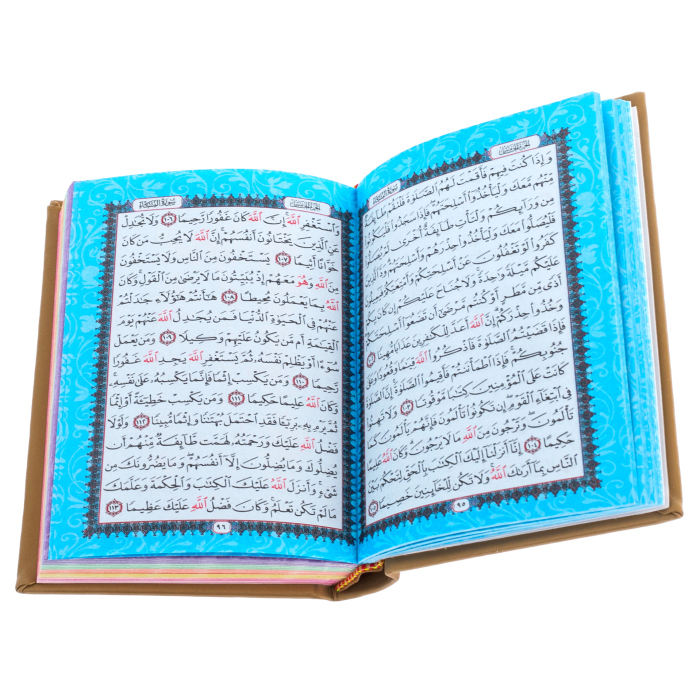 الجزء الخامس سورة النساء
وَإِذَا كُنتَ فِيهِمْ فَأَقَمْتَ لَهُمُ ٱلصَّلَوٰةَ فَلْتَقُمْ طَآئِفَةٌ
مِّنْهُم مَّعَكَ وَلْيَأْخُذُوٓا۟ أَسْلِحَتَهُمْ فَإِذَا سَجَدُوا۟ فَلْيَكُونُوا۟
مِن وَرَآئِكُمْ وَلْتَأْتِ طَآئِفَةٌ أُخْرَىٰ لَمْ يُصَلُّوا۟
فَلْيُصَلُّوا۟ مَعَكَ وَلْيَأْخُذُوا۟ حِذْرَهُمْ وَأَسْلِحَتَهُمْ وَدَّ ٱلَّذِينَ
كَفَرُوا۟ لَوْ تَغْفُلُونَ عَنْ أَسْلِحَتِكُمْ وَأَمْتِعَتِكُمْ فَيَمِيلُونَ
عَلَيْكُم مَّيْلَةً وَٰحِدَةً وَلَا جُنَاحَ عَلَيْكُمْ إِن كَانَ بِكُمْ
أَذًى مِّن مَّطَرٍ أَوْ كُنتُم مَّرْضَىٰٓ أَن تَضَعُوٓا۟ أَسْلِحَتَكُمْ
وَخُذُوا۟ حِذْرَكُمْ إِنَّ ٱللَّهَ أَعَدَّ لِلْكَٰفِرِينَ عَذَابًا مُّهِينًا ١٠٢
فَإِذَا قَضَيْتُمُ ٱلصَّلَوٰةَ فَٱذْكُرُوا۟ ٱللَّهَ قِيَٰمًا وَقُعُودًا وَعَلَىٰ
جُنُوبِكُمْ فَإِذَا ٱطْمَأْنَنتُمْ فَأَقِيمُوا۟ ٱلصَّلَوٰةَ إِنَّ ٱلصَّلَوٰةَ
كَانَتْ عَلَى ٱلْمُؤْمِنِينَ كِتَٰبًا مَّوْقُوتًا ١٠٣ وَلَا تَهِنُوا۟
فِى ٱبْتِغَآءِ ٱلْقَوْمِ إِن تَكُونُوا۟ تَأْلَمُونَ فَإِنَّهُمْ يَأْلَمُونَ كَمَا
تَأْلَمُونَ وَتَرْجُونَ مِنَ ٱللَّهِ مَا لَا يَرْجُونَ وَكَانَ ٱللَّهُ عَلِيمًا
حَكِيمًا ١٠٤ إِنَّآ أَنزَلْنَآ إِلَيْكَ ٱلْكِتَٰبَ بِٱلْحَقِّ لِتَحْكُمَ بَيْنَ
ٱلنَّاسِ بِمَآ أَرَىٰكَ ٱللَّهُ وَلَا تَكُن لِّلْخَآئِنِينَ خَصِيمًا ١٠٥
٩٥
الجزء الخامس سورة النساء
وَٱسْتَغْفِرِ ٱللَّهَ إِنَّ ٱللَّهَ كَانَ غَفُورًا رَّحِيمًا ١٠٦ وَلَا تُجَٰدِلْ
عَنِ ٱلَّذِينَ يَخْتَانُونَ أَنفُسَهُمْ إِنَّ ٱللَّهَ لَا يُحِبُّ مَن كَانَ
خَوَّانًا أَثِيمًا ١٠٧ يَسْتَخْفُونَ مِنَ ٱلنَّاسِ وَلَا يَسْتَخْفُونَ
مِنَ ٱللَّهِ وَهُوَ مَعَهُمْ إِذْ يُبَيِّتُونَ مَا لَا يَرْضَىٰ مِنَ ٱلْقَوْلِ وَكَانَ
ٱللَّهُ بِمَا يَعْمَلُونَ مُحِيطًا ١٠٨ هَٰٓأَنتُمْ هَٰٓؤُلَآءِ جَٰدَلْتُمْ
عَنْهُمْ فِى ٱلْحَيَوٰةِ ٱلدُّنْيَا فَمَن يُجَٰدِلُ ٱللَّهَ عَنْهُمْ يَوْمَ
ٱلْقِيَٰمَةِ أَم مَّن يَكُونُ عَلَيْهِمْ وَكِيلًا ١٠٩ وَمَن يَعْمَلْ
سُوٓءًا أَوْ يَظْلِمْ نَفْسَهُۥ ثُمَّ يَسْتَغْفِرِ ٱللَّهَ يَجِدِ ٱللَّهَ غَفُورًا
رَّحِيمًا ١١٠ وَمَن يَكْسِبْ إِثْمًا فَإِنَّمَا يَكْسِبُهُۥ عَلَىٰ نَفْسِهِۦ
وَكَانَ ٱللَّهُ عَلِيمًا حَكِيمًا ١١١ وَمَن يَكْسِبْ خَطِيٓئَةً أَوْ إِثْمًا
ثُمَّ يَرْمِ بِهِۦ بَرِيٓـًٔا فَقَدِ ٱحْتَمَلَ بُهْتَٰنًا وَإِثْمًا مُّبِينًا ١١٢ وَلَوْلَا
فَضْلُ ٱللَّهِ عَلَيْكَ وَرَحْمَتُهُۥ لَهَمَّت طَّآئِفَةٌ مِّنْهُمْ أَن
يُضِلُّوكَ وَمَا يُضِلُّونَ إِلَّآ أَنفُسَهُمْ وَمَا يَضُرُّونَكَ مِن
شَىْءٍ وَأَنزَلَ ٱللَّهُ عَلَيْكَ ٱلْكِتَٰبَ وَٱلْحِكْمَةَ وَعَلَّمَكَ
مَا لَمْ تَكُن تَعْلَمُ وَكَانَ فَضْلُ ٱللَّهِ عَلَيْكَ عَظِيمًا ١١٣
٩٦